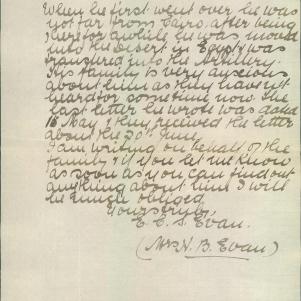 When he first went over he was
not far from Cairo, after being
there for a while he was moved
into the desert in Egypt & was
transfered into the Artillery.
His family is very anxious
about him as they have not
heard for sometime now the
last letter he wrote was dated
16 May & they recived the letter
about the 20th June.
I am writing on behalf of the
family & if you let me know
as soon as you can find out
anything about him I will
be much obliged
Yours truly,
E. C. S. Evan.
(Mrs N. B. Evan)